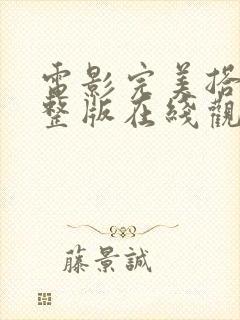 電影完美搭
整版在綫觀
藤景誠